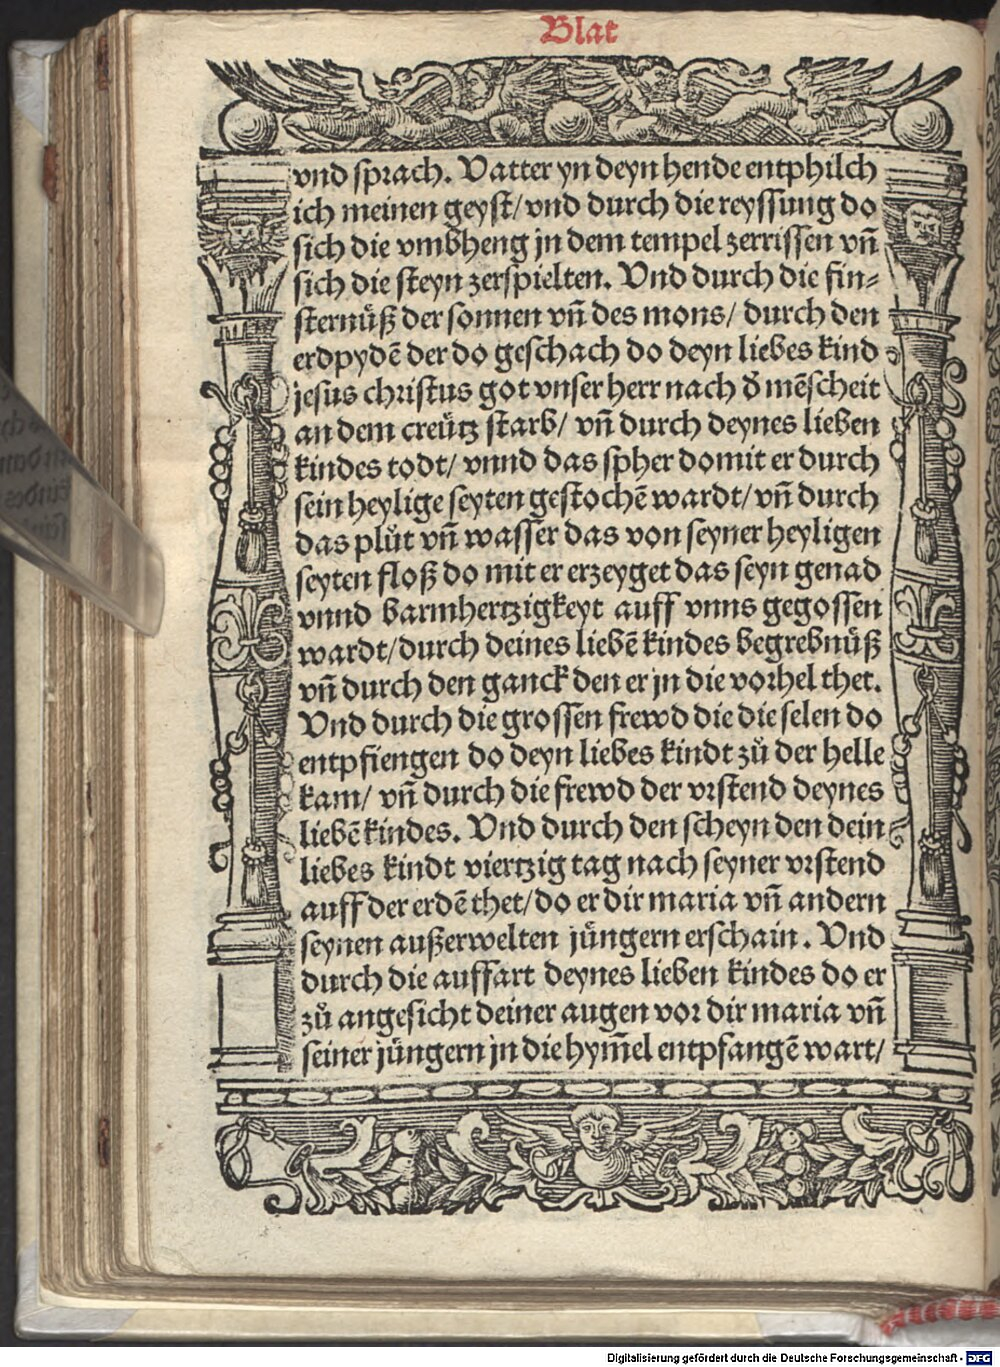 Blat
vnd sprach. Vatter yn deyn hende entphilch
ich meinen geyst/ vnd durch die reyssung do
sich die vmbheng jn dem tempel zerrissen vn̄
sich die steyn zerspielten. Vnd durch die fin⸗
sternuͤß der sonnen vn̄ des mons/ durch den
erdpydē der do geschach do deyn liebes kind
jesus christus got vnser herr nach d̕ mēscheit
an dem creuͤtz starb/ vn̄ durch deynes lieben
kindes todt/ vnnd das spher domit er durch
sein heylige seyten gestochē wardt/ vn̄ durch
das pluͦt vn̄ wasser das von seyner heyligen
seyten floß do mit er erzeyget das seyn genad
vnnd barmhertzigkeyt auff vnns gegossen
wardt/ durch deines liebē kindes begrebnuͤß
vn̄ durch den ganck den er jn die vorhel thet.
Vnd durch die grossen frewd die die selen do
entpfiengen do deyn liebes kindt zuͦ der helle
kam/ vn̄ durch die frewd der vrstend deynes
liebē kindes. Vnd durch den scheyn den dein
liebes kindt viertzig tag nach seyner vrstend
auff der erdē thet/ do er dir maria vn̄ andern
seynen außerwelten juͤngern erschain. Vnd
durch die auffart deynes lieben kindes do er
zuͦ angesicht deiner augen vor dir maria vn̄
seiner juͤngern jn die hym̄el entpfangē wart/
Digitalisierung gefördert durch die Deutsche Forschungsgemeinschaft - DFG